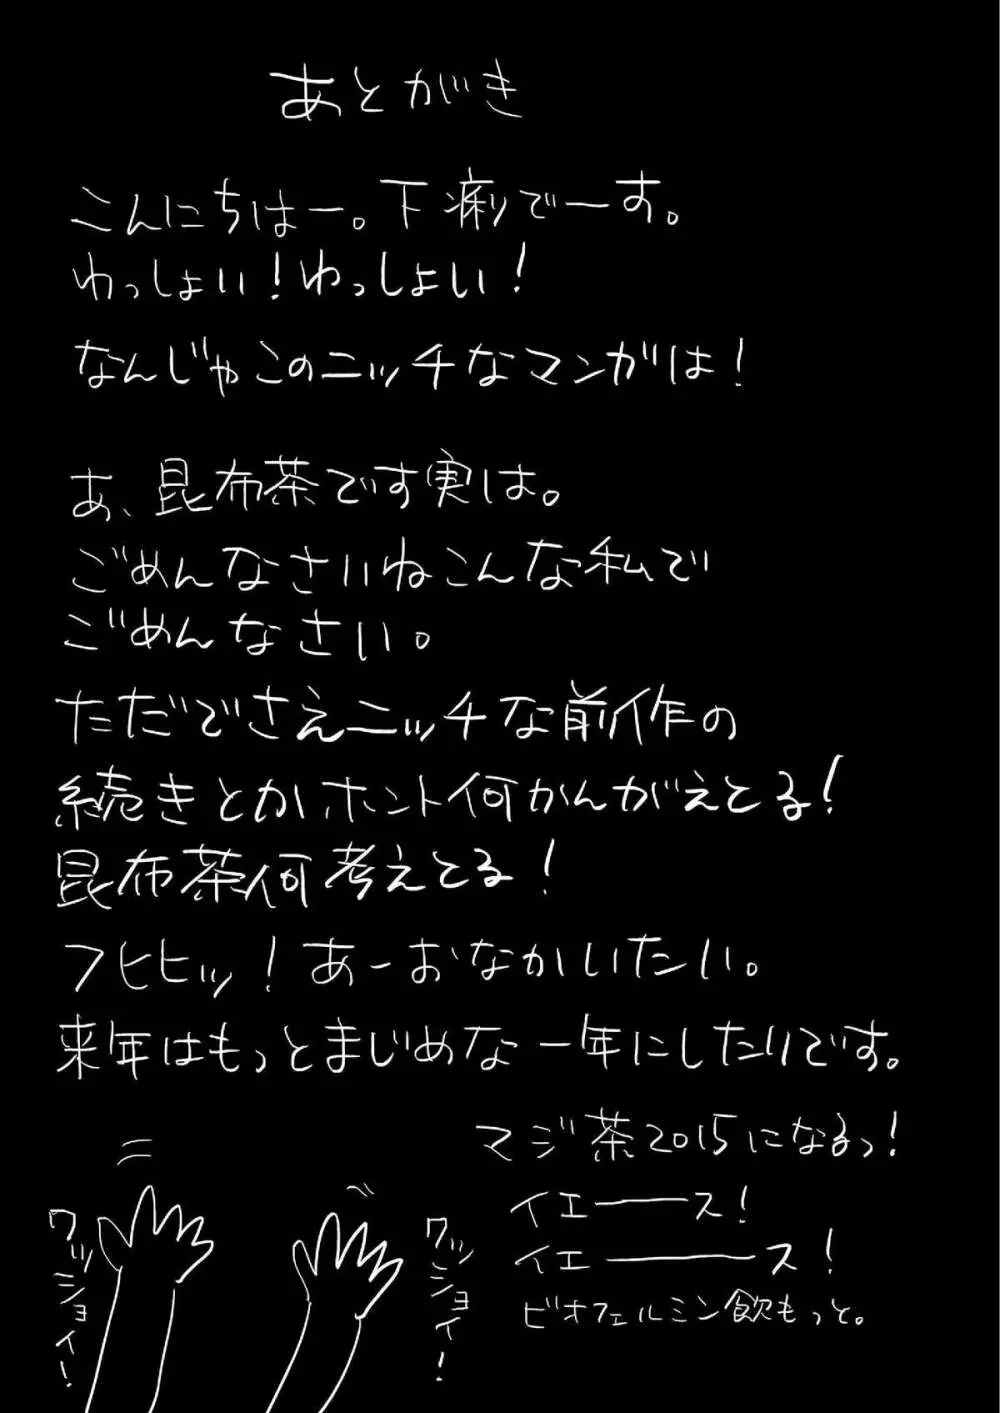 あとがき
こんにちはー。下痢でーす。
わっしょい！わっしょい！
なんじゃこのニッチなマンガは！
あ、昆布茶です実は。
ごめんなさいねこんな私で
ごめんなさい。
ただでさえニッチな前作の
続きとかホント何かんがえてる！
昆布茶何考えてる！
フヒヒッ！あーおなかいたい。
来年はもっとまじめな一年にしたいです。
マジ茶2015になるっ！
イエーース！
イエーーース！
ビオフェルミン飲もっと。
ワッショイ！
ワッショイ！